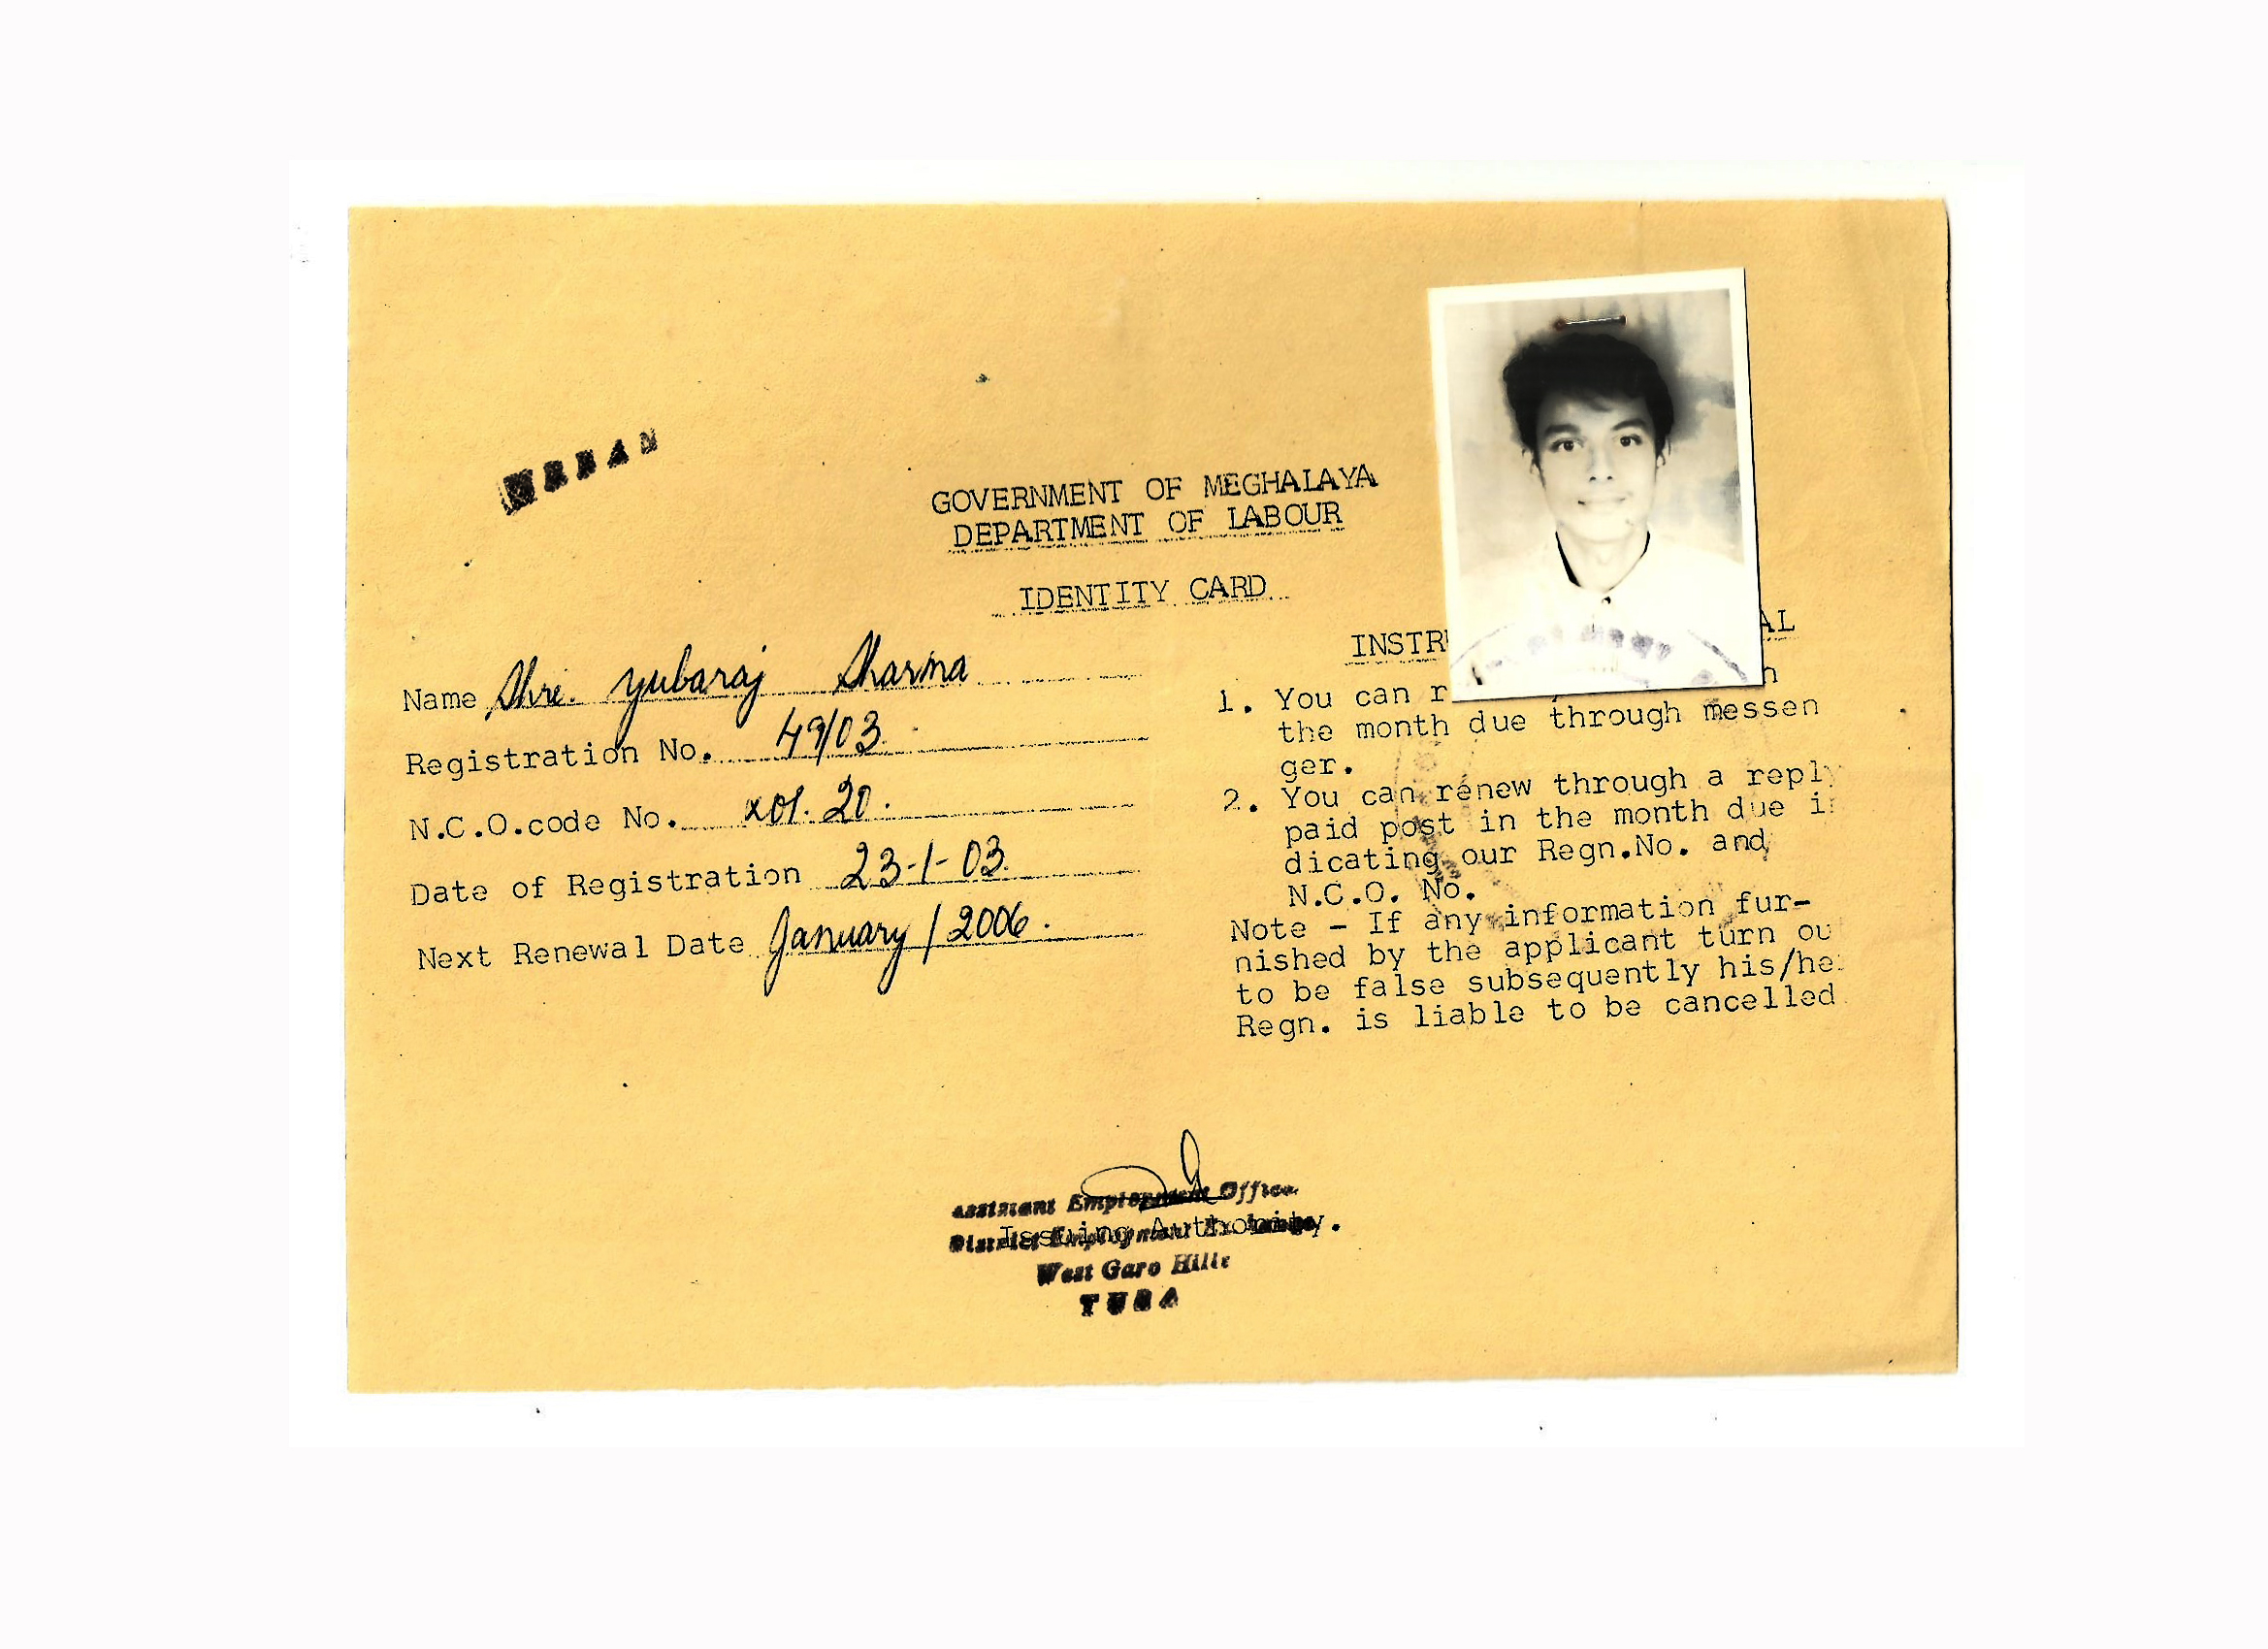 URBAN
GOVERNMENT OF MEGHALAYA
DEPARTMENT OF LABOUR
IDENTITY CARD
Name Shre. Yubaraj Sharma
Registration No. 49/03
N.C.O.code No. X01.20.
Date of Registration 23-1-03
Next Renewal Date January/2006.
INSTR AL
1. You can r
the month due through messen
ger.
2. You can renew through a reply
paid post in the month due i
dicating our Regn.No. and
N.C.O. No.
Note - If any information fur-
nished by the applicant turn ou
to be false subsequently his/he
Regn. is liable to be cancelled
Assistant Employment Office
Issuing Authority.
District Employment Exchange
West Garo Hills
TURA